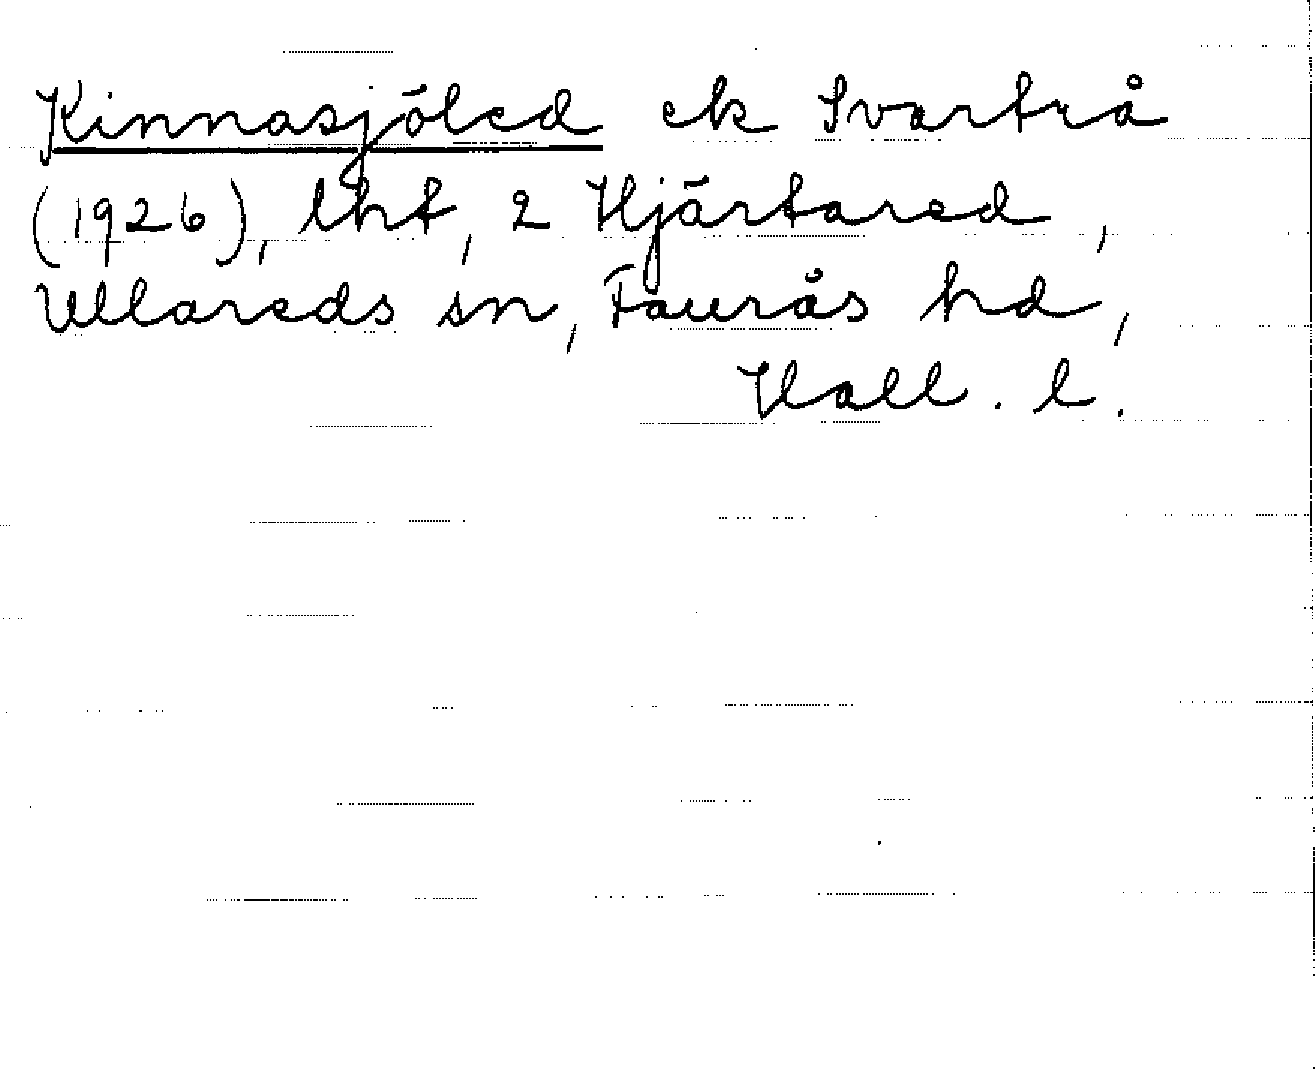 Kinnasjöled ek Svartrå
(1926), lht, 2 Hjärtared,
Ullareds sn, Faurås hd,
Hall. l.